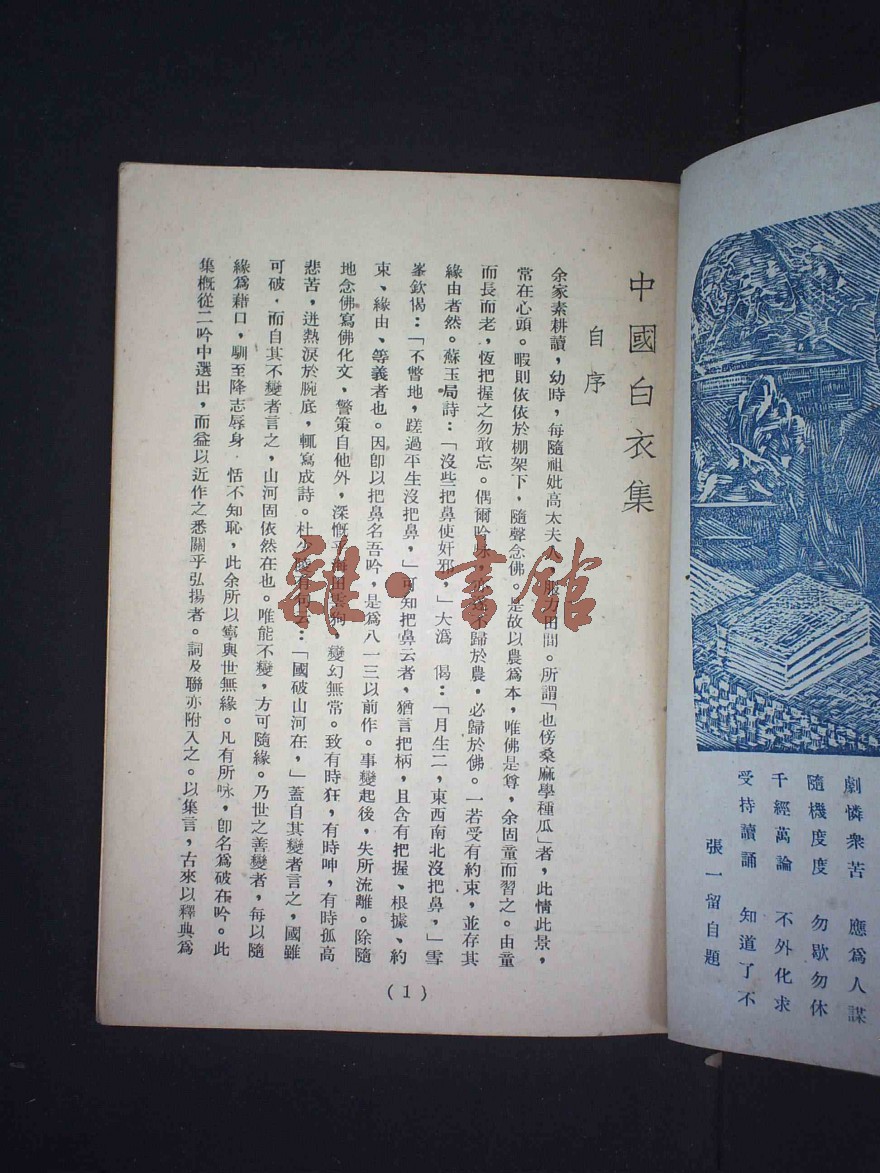 中國白衣集
自序
余家素耕讀，幼時，每隨祖妣高太夫人，服力田間。所謂「也傍桑麻學種瓜」者，此情此景，
常在心頭。暇則依依於棚架下，隨聲念佛。是故以農爲本，唯佛是尊，余固童而習之。由童
而長而老，恆把握之勿敢忘。偶爾吟咏，不歸於農．必歸於佛。一若受有約束，並存其
緣由者然。蘇玉局詩：「沒些把鼻使奸邪，」大潙 偈：「月生二，東西南北沒把鼻，」雪
峯欽偈：「不瞥地，蹉過平生沒把鼻，」可知把鼻云者，猶言把柄，且含有把握、根據、約
束、緣由、等義者也。因卽以把鼻名吾吟，是爲八一三以前作。事變起後，失所流離。除隨
地念佛寫佛化文，警策自他外，深慨乎海田雲狗，變幻無常。致有時狂，有時呻，有時孤高
悲苦，迸熱淚於腕底，輒寫成詩。杜少陵有句云：「國破山河在，」蓋自其變者言之，國雖
可破．而自其不變者言之，山河固依然在也。唯能不變，方可隨緣。乃世之善變者，每以隨
緣爲藉口，馴至降志辱身 恬不知恥，此余所以寧與世無緣。凡有所咏，卽名爲破在吟。此
集概從二吟中選出，而益以近作之悉關乎弘揚者。詞及聯亦附入之。以集言，古來以釋典爲
(1)
劇憐衆苦 應爲人謀
隨機度度 勿歇勿休
千經萬論 不外化求
受持讀誦 知道了不
張一留自題
雜·書館